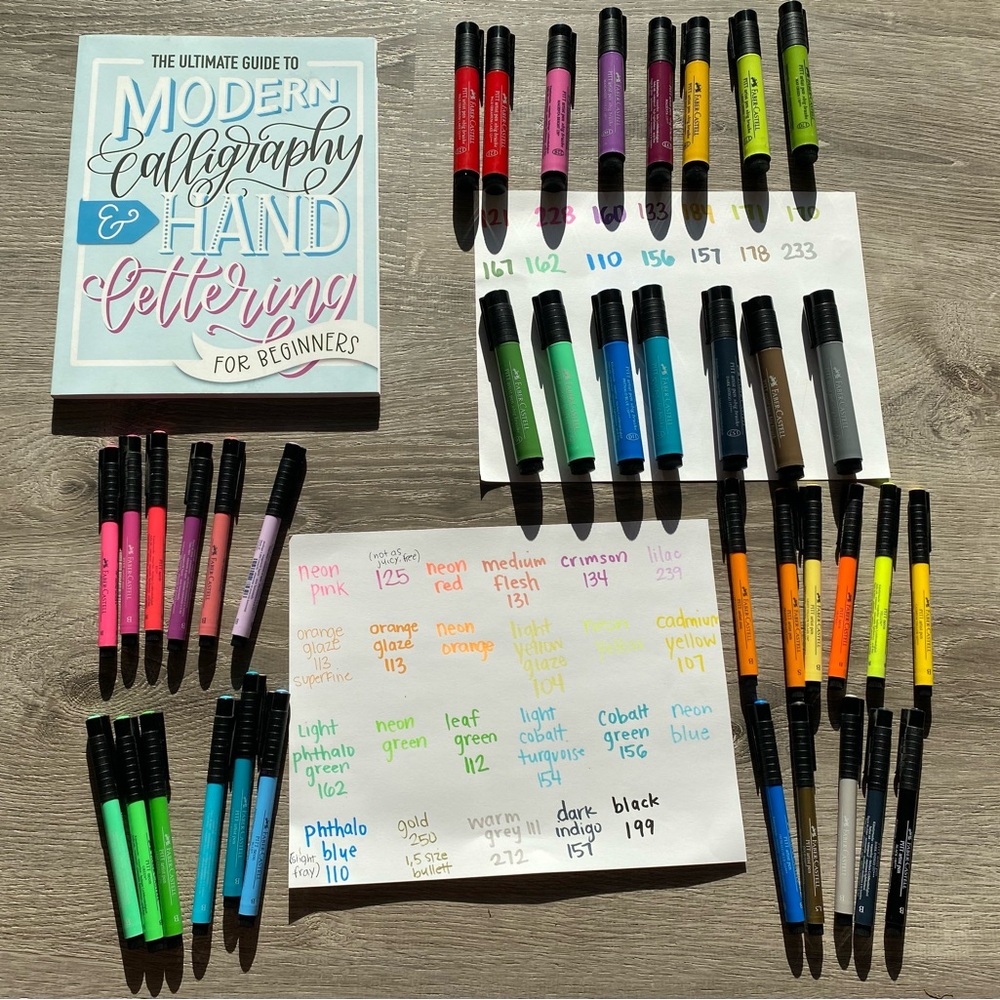 THE ULTIMATE GUIDE TO
MODERN
Calligraphy
& HAND
lettering
FOR BEGINNERS
121 228 160 133 184 171 170
167 162 110 156 157 178 233
FABER-CASTELL
PITT artist pen
neon pink
(not as juicy, free)
125
neon red
medium flesh
131
crimson
134
lilac
239
orange glaze
113
superfine
orange glaze
113
neon orange
light yellow glaze
104
neon yellow
cadmium yellow
107
light phthalo green
162
neon green
leaf green
112
light cobalt turquoise
154
cobalt green
156
neon blue
phthalo blue
110
(slight fray)
gold
250
1,5 size bullett
warm grey III
272
dark indigo
157
black
199